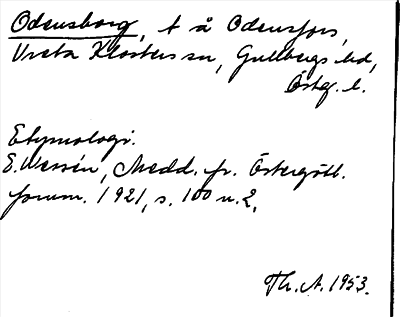 Odensborg, t å Odensfors,
Vreta Klosters sn, Gullbergs hd,
Östg. l.
Etymologi.
E. Wessén, Medd. fr. Östergötl.
fornm. 1921, s. 100 n. 2.
Th. A. 1953.